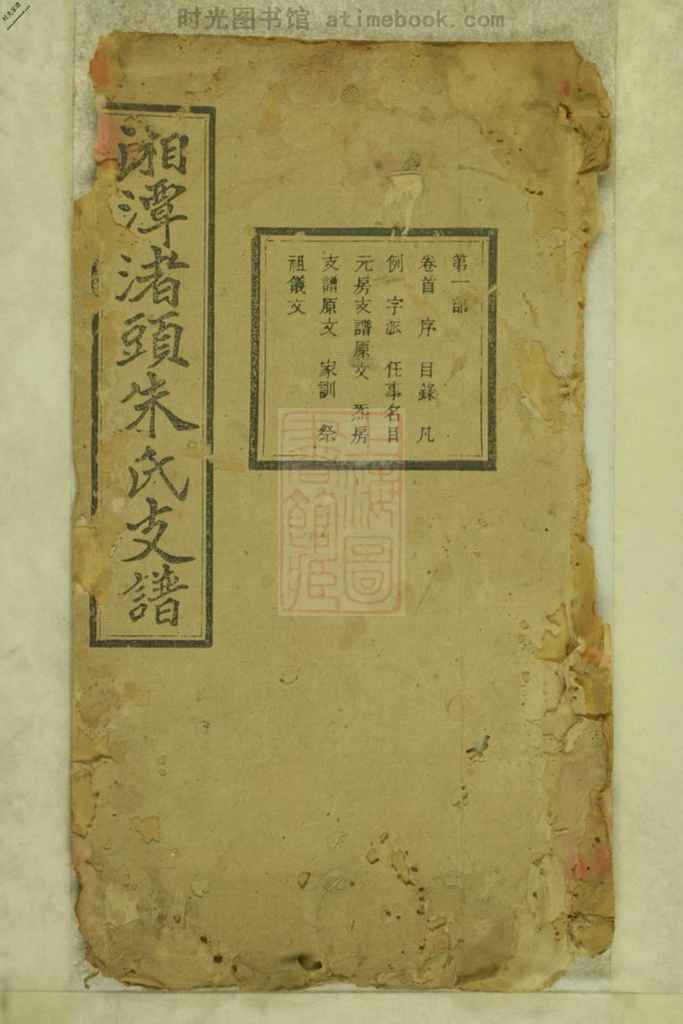 时光图书馆 atimebook.com
湘潭渚頭朱氏支譜
第一部
卷首 序 目錄 凡
例 字派 任事名目
元房支譜原文 炁房
支譜原文 家訓 祭
祖儀文
上海圖
書館藏